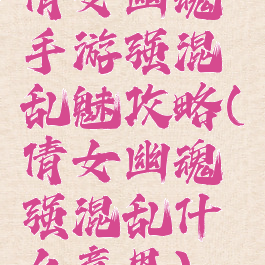 倩女幽魂
手游强混
乱魅攻略(
倩女幽魂
强混乱什
么意思)